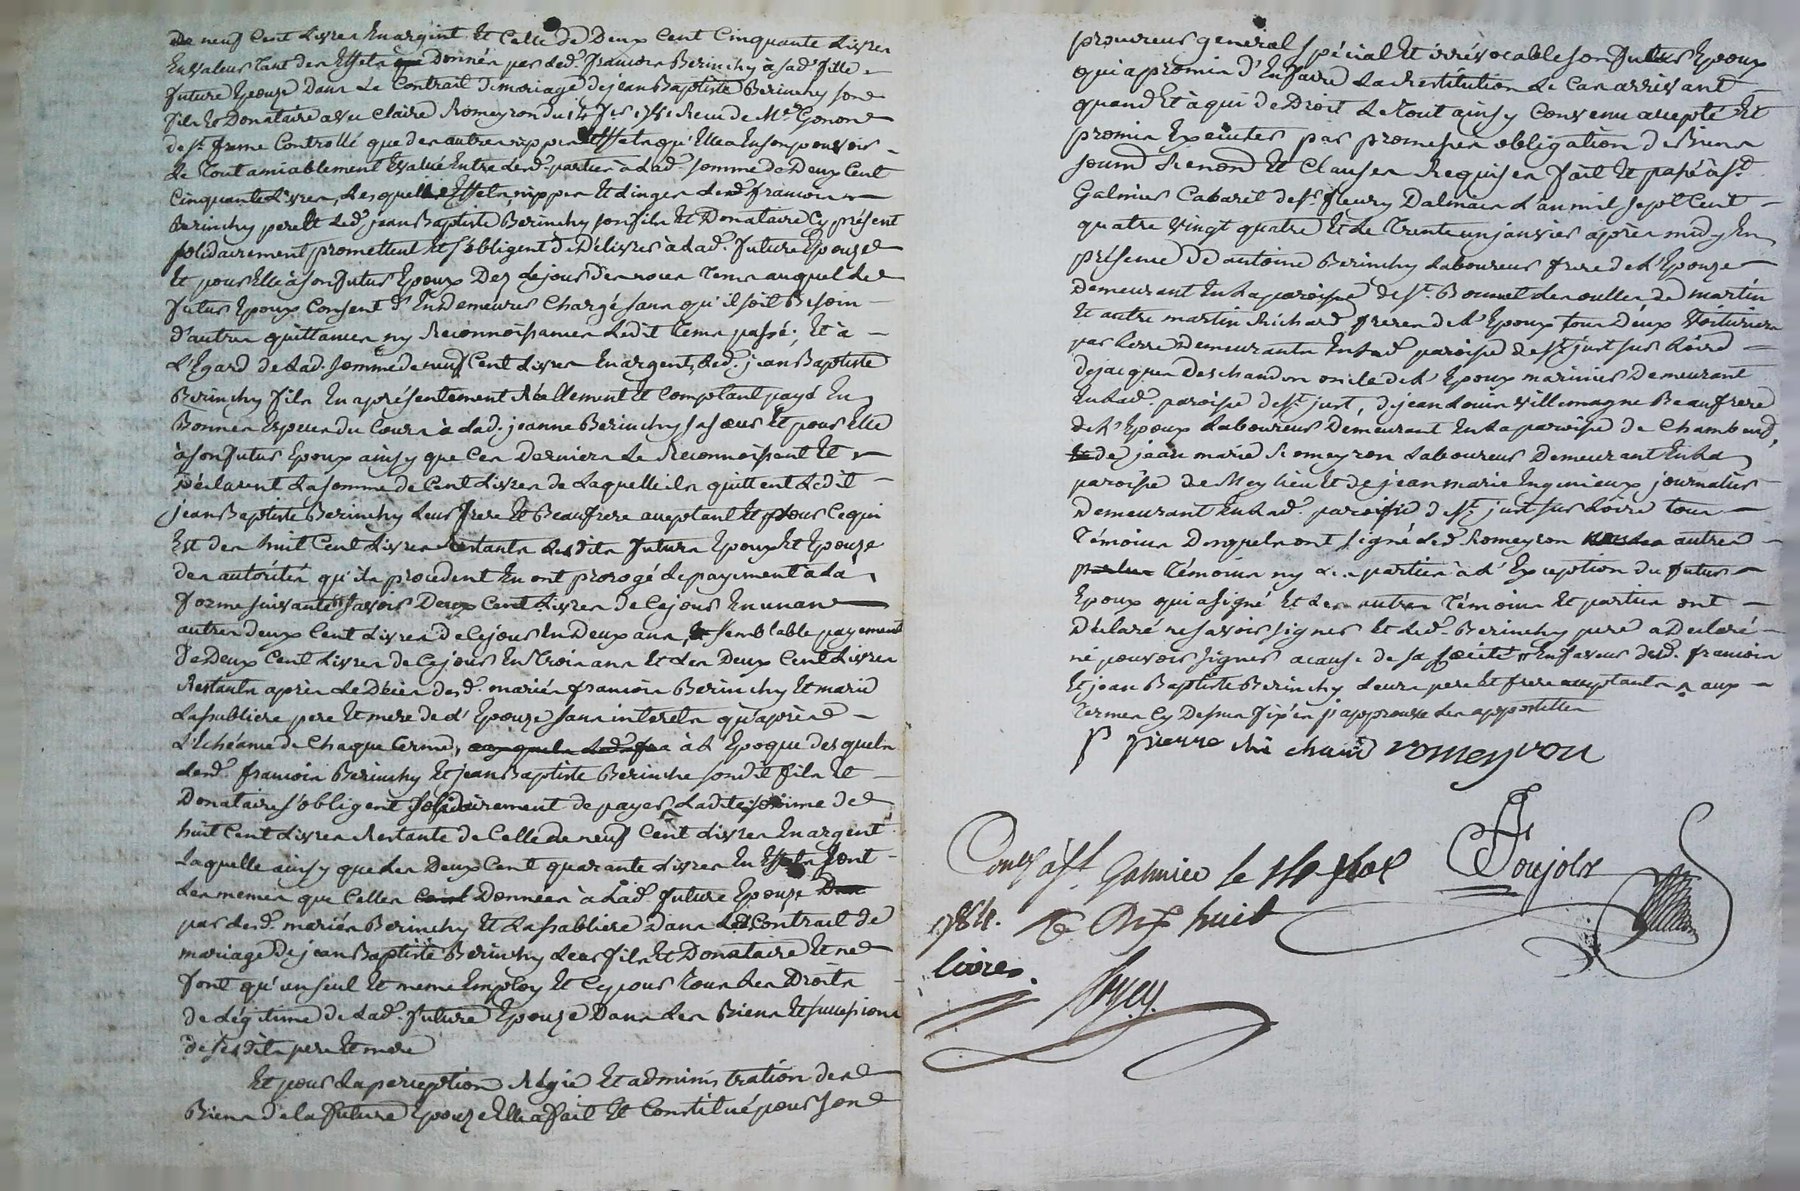 de neuf Cent Livres En argent Et Celle de Deux Cent Cinquante Livres
En valeur Tant des Effets Donnés par led. francois Berinchy à sad. fille
future Epouze Dans Le Contrait de mariage de jean Baptiste Berinchy son
fils Et Donataire avec Claire Romeyron du Reçu de Me. Gonon
de st. Controllé que des autres nippes Effets qu'Elle a En son pouvoir
Le Tout amiablement Evalué Entre Les d. parties à Lad. Somme de Deux Cent
Cinquante Livres, Lesquelles Effets, nippes Et Linges Led. francois
Berinchy pere Et Led. jean Baptiste Berinchy son fils Et Donataire Cy présent
solidairement promettent Et s'obligent de Délivrer à Lad. future Epouze
Et pour Elle à son futur Epoux Dez Le jour des noces Tems auquel Led.
futur Epoux Consent d'En Demeurer Chargé sans qu'il soit Besoin
d'autres quittances ny Reconnoissances Ledit Tems passé; Et à
L'Egard de Lad. Somme de neuf Cent Livres En argent, Led. jean Baptiste
Berinchy fils En a présentement Réellement Et Comptant payé En
Bonnes Especes du Cours à Lad. jeanne Berinchy sa sœur Et pour Elle
à son futur Epoux ainsy que Ces Derniers Le Reconnoissent Et
Déclarent La somme de Cent Livres de Laquelle ils quittent Ledit
jean Baptiste Berinchy Leur frere Et Beaufrere acceptant Et pour Ce qui
Est des huit Cent Livres Restants Lesdits futurs Epoux Et Epouze
des autorités qu'ils procedent En ont prorogé Le payement à La
forme suivante savoir Deux Cent Livres de Ce jour En un an
autres deux Cent Livres de Ce jour En Deux ans, semblable payement
de Deux Cent Livres de Ce jour En Trois ans Et Les Deux Cent Livres
Restants après Le Décès des d. mariés francois Berinchy Et marie
Lassabliere pere Et mere de L'Epouze sans interets qu'après
L'Echéance de Chaque Terme, à L'Epoque des quels
Led. francois Berinchy Et jean Baptiste Berinche son dit fils Et
Donataire s'obligent solidairement de payer Ladite somme de
huit Cent Livres Restante de Celle de neuf Cent Livres En argent
Laquelle ainsy que Les Deux Cent quarante Livres En Effets sont
Les memes que Celles Données à Lad. future Epouze
par Les d. mariés Berinchy Et Lassabliere Dans Led. Contrait de
mariage de jean Baptiste Berinchy Leur fils Et Donataire Et ne
font qu'un seul Et meme Employ Et Ce pour Tous Les Droits
de Légitime de Lad. future Epouze Dans Les Biens Et successions
de ses dits pere Et mere
Et pour La perception Régie Et administration des
Biens de la future Epouze Elle a fait Et Constitué pour son
procureur général spécial Et irrévocable son futur Epoux
qui a promis d'En faire La Restitution Le Cas arrivant
quand Et à qui de Droit Le Tout ainsy Convenu accepté Et
promis Executer par promesses obligation de Biens
soumd. Renond. Et Clauses Requises fait Et passé à St.
Galmier Cabaret de Sr. fleury Dalmais L'an mil sept Cent
quatre vingt quatre Et Le Trente un janvier après midy En
présence de antoine Berinchy Laboureur frere de L'Epouze
demeurant En La paroisse de St. Bonnet Les oulles de martin
Et autre martin Richard freres de L'Epoux tous Deux Voituriers
par Terre Demeurants En Lad. paroisse de St. just sur Loire
de jacques Deschandon oncle de L'Epoux marinier Demeurant
En Lad. paroisse de St. just, de jean Louis Villemagne Beaufrere
de L'Epoux Laboureur Demeurant En La paroisse de Chambeuf,
de jean marie Romeyron Laboureur Demeurant En La
paroisse de Meylieu Et de jean marie Enginieux journalier
Demeurant En Lad. paroisse de St. just sur Loire tous
Témoins Desquels ont signé Led. Romeyron autres
Témoins ny Les parties à L'Exception du futur
Epoux qui a signé Et Les autres Témoins Et parties ont
Déclaré ne savoir signer Et Led. Berinchy pere a Declaré
ne pouvoir signer a cause de sa Cécité En faveur desd. francois
Et jean Baptiste Berinchy Leurs pere Et frere acceptants aux
Termes Cy Dessus fixés j'approuve Les appostilles
p pierre Richard romeyron
Soujols
Galmier le
1784. Dix huit
livres.